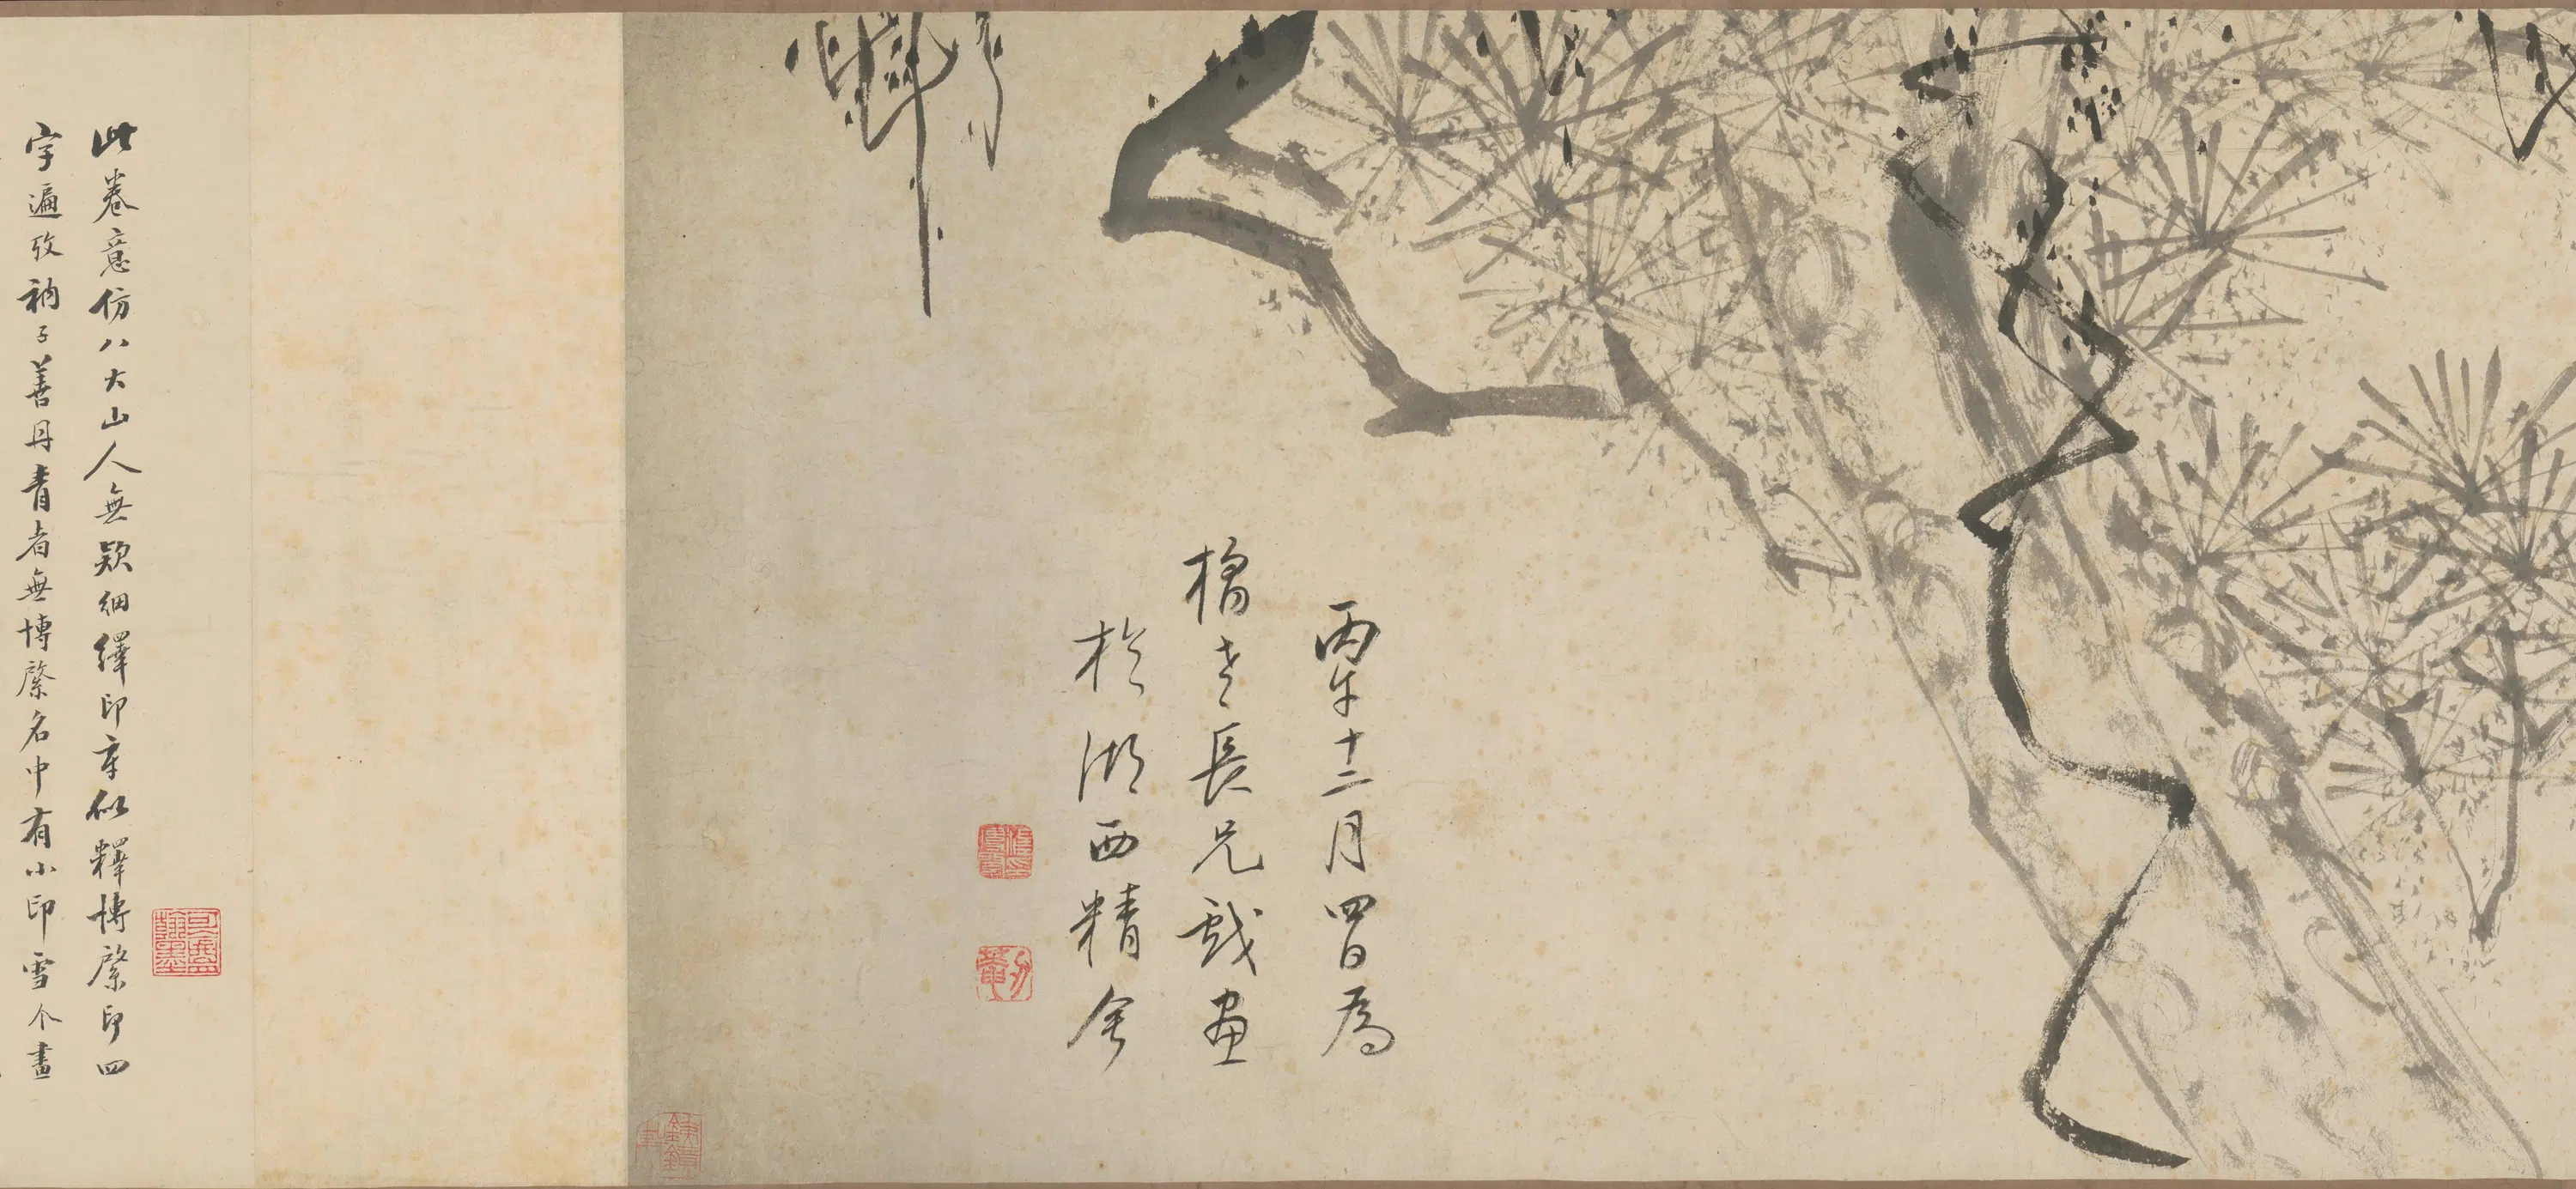 丙午十二月四日為
橋老長兄戲畫
於湖西精舍
此卷意仿八大山人無款細繹印章似釋博綮印四
字遍攷衲子善丹青者無博綮名中有小印雪个畫